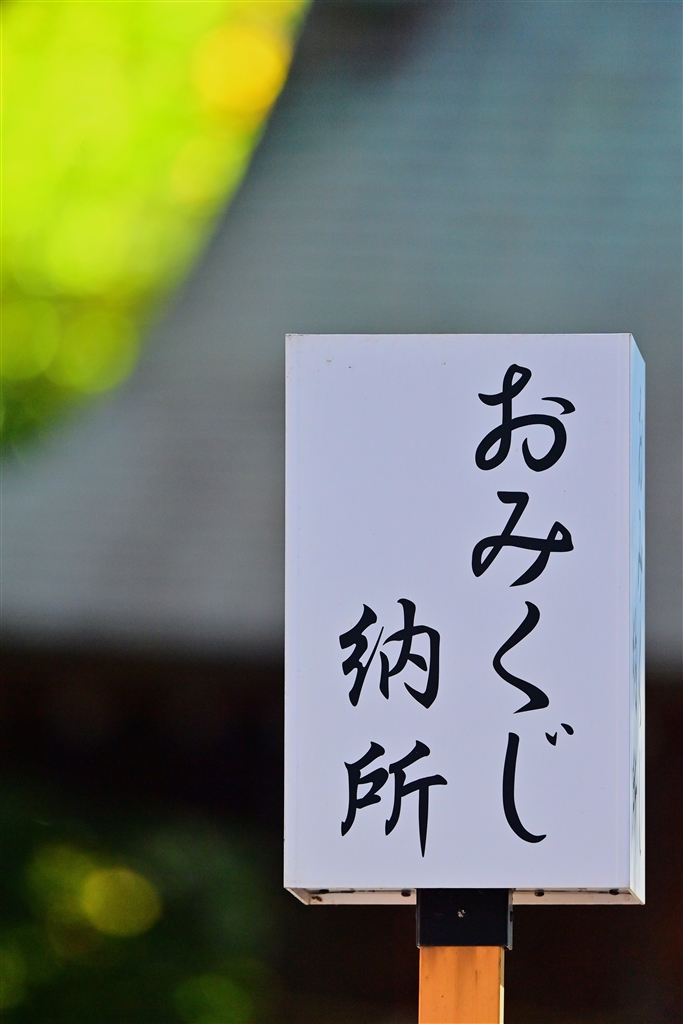 おみくじ
納所